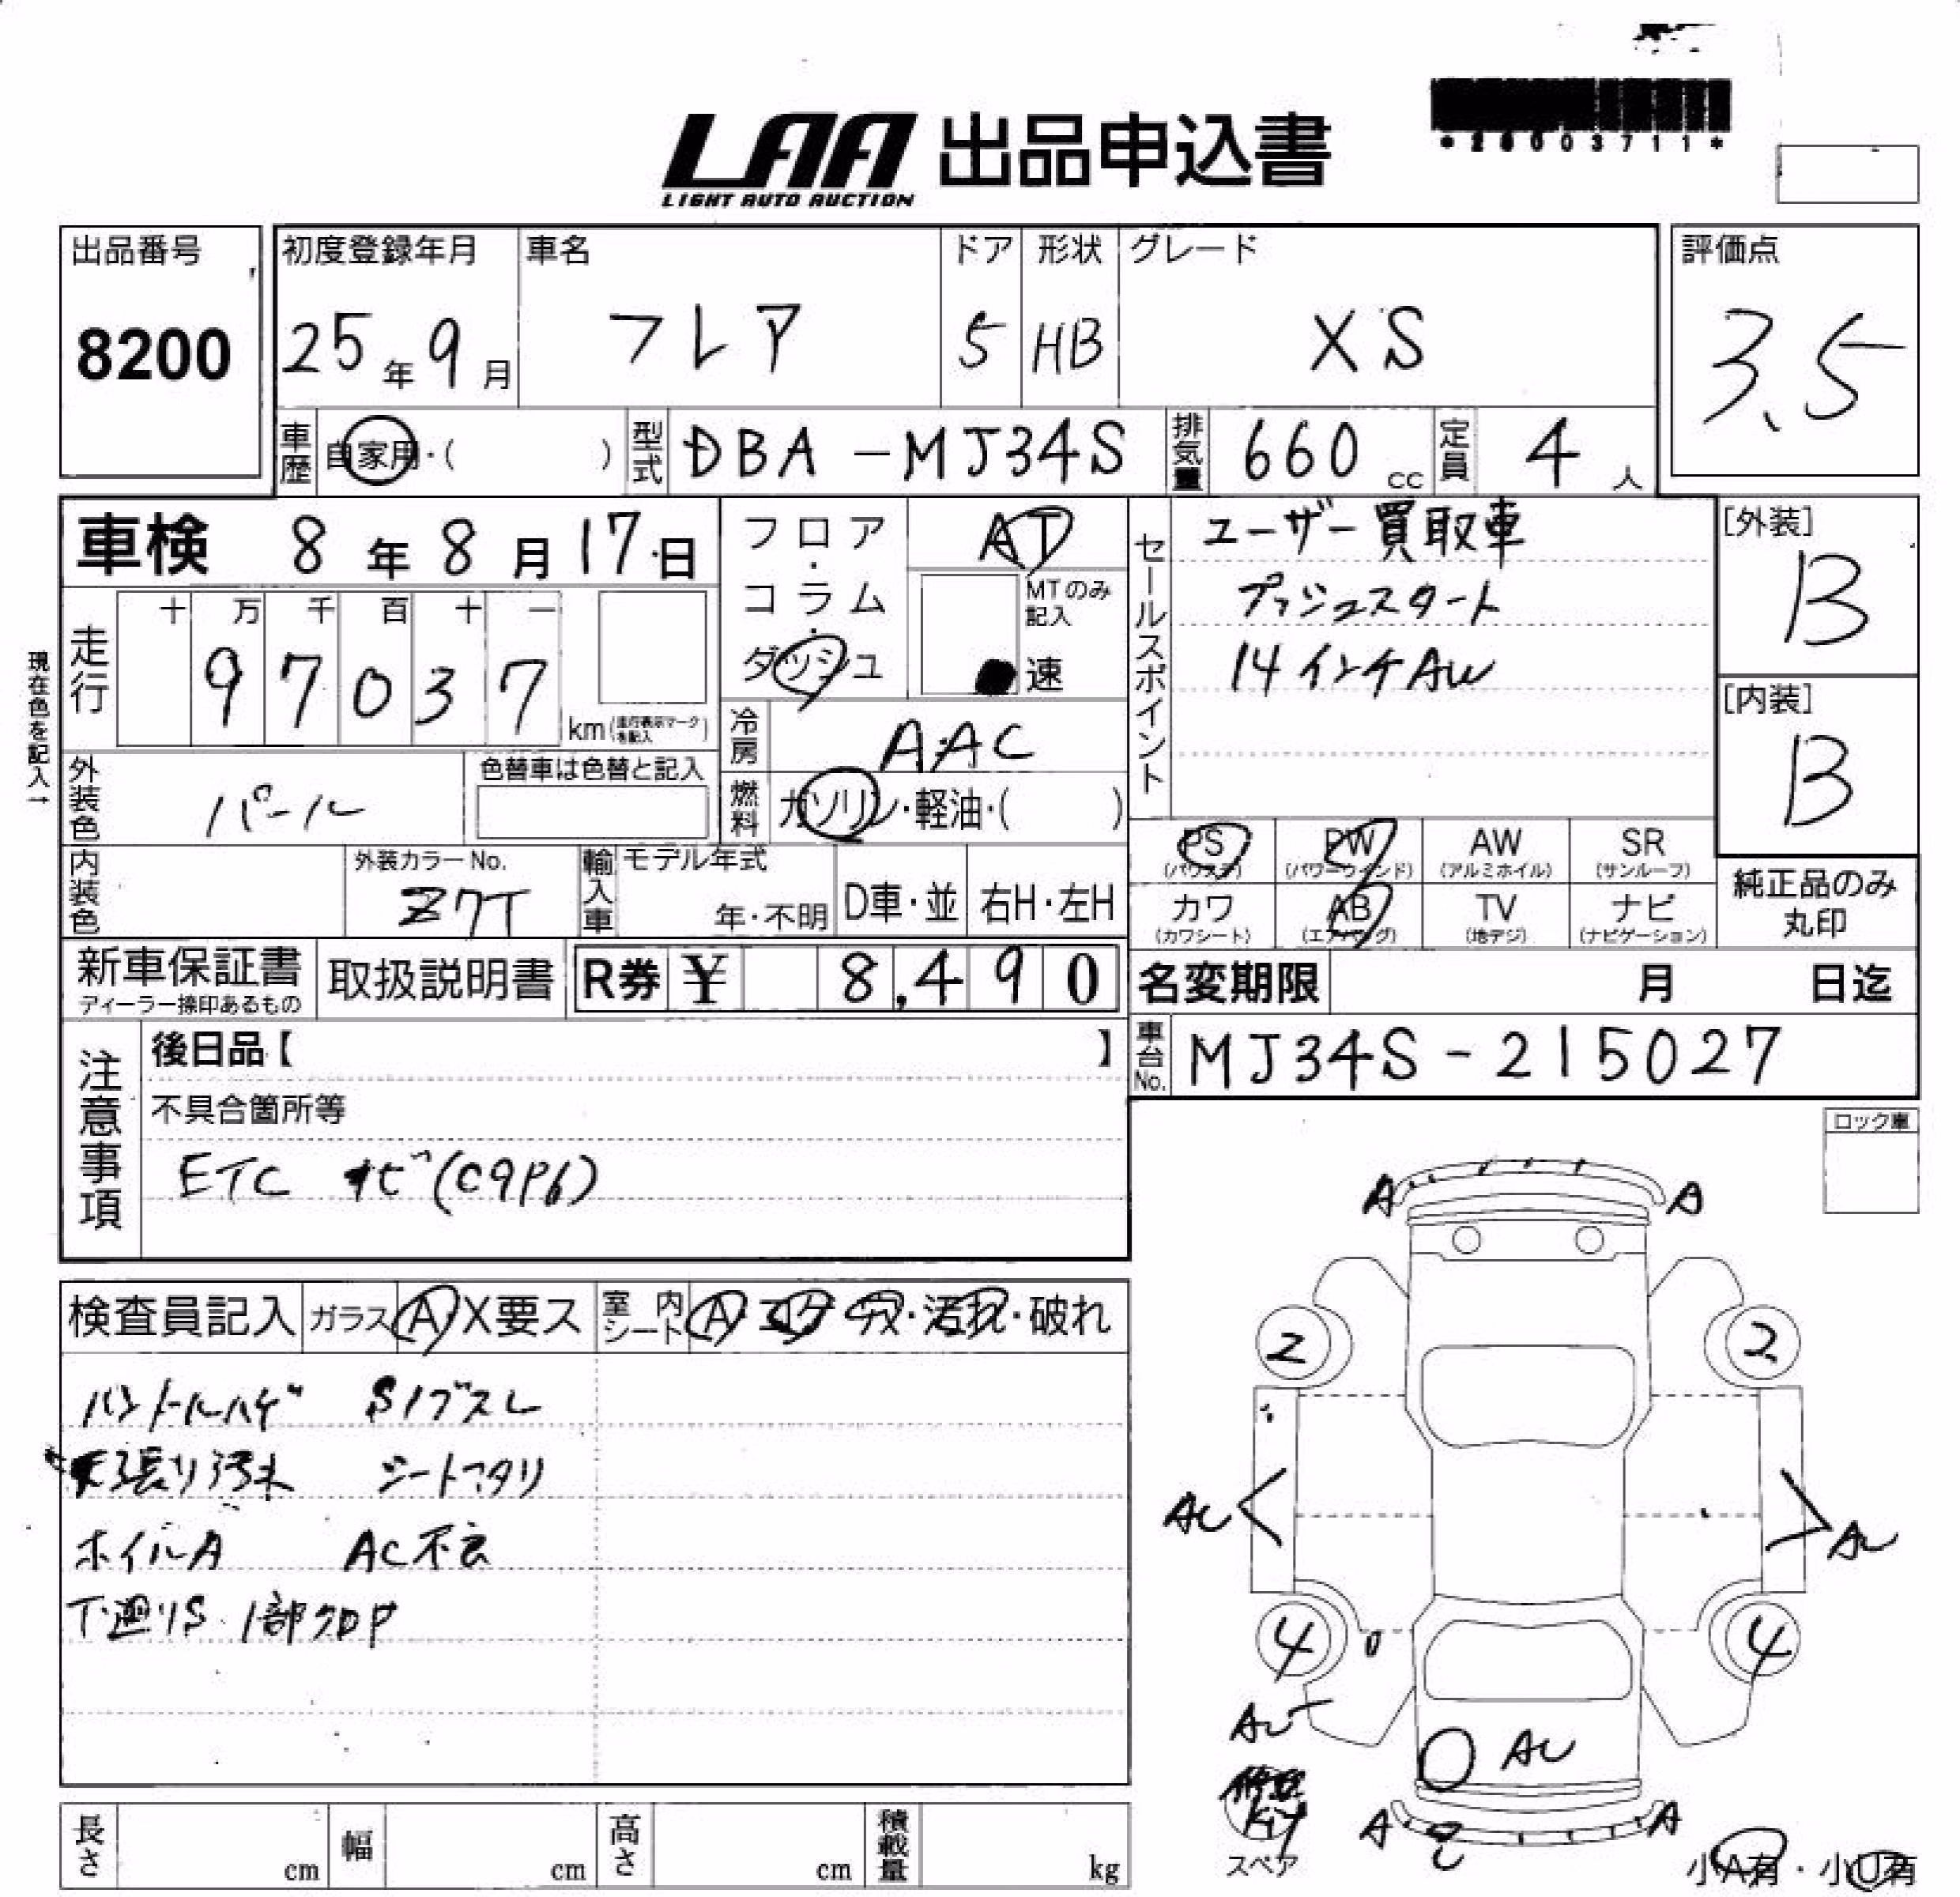 *28003711*
LAA 出品申込書
LIGHT AUTO AUCTION
出品番号 初度登録年月 車名 ドア 形状 グレード 評価点
8200 25年9月 フレア 5 HB XS 3.5
車歴 自家用・( ) 型式 DBA-MJ34S 排気量 660cc 定員 4人
車検 8年8月17日
フロア・コラム・ダッシュ
AT
MTのみ記入
速
セールスポイント
ユーザー買取車
プッシュスタート
14インチAW
[外装]
B
[内装]
B
現在色を記入→
走行 十万千百十一
97037 km(走行表示マークを記入)
冷房 AAC
燃料 ガソリン・軽油・( )
外装色 パール 色替車は色替と記入
内装色 外装カラーNo. Z7T 輸入車 モデル年式 年・不明 D車・並 右H・左H
PS(パワステ) PW(パワーウィンド) AW(アルミホイル) SR(サンルーフ)
カワ(カワシート) AB(エアバッグ) TV(地デジ) ナビ(ナビゲーション)
純正品のみ丸印
新車保証書 ディーラー捺印あるもの 取扱説明書 R券 ¥ 8,490
名変期限 月 日迄
車台No. MJ34S-215027
注意事項
後日品【 】
不具合箇所等
ETC ナビ(C9P6)
ロック車
検査員記入 ガラス A X要ス 室内シート A・コゲ・穴・汚れ・破れ
ハンドルハゲ Sノブスレ
天張り汚れ シートヘタリ
ホイルA AC不良
下廻りS 1部クロP
A A
2 2
AU AU
4 4
AU
AU
修理Kit
スペア
A A
小A有・小U有
長さ cm 幅 cm 高さ cm 積載量 kg